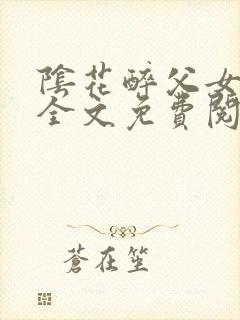 陰花醉父女
全文免費閱
蒼在笙